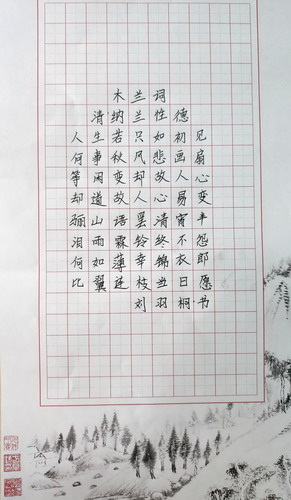 木兰词
清纳兰性德
人生若只如初见
何事秋风悲画扇
等闲变却故人心
却道故人心易变
骊山语罢清宵半
泪雨霖铃终不怨
何如薄幸锦衣郎
比翼连枝当日愿
刘羽桐书